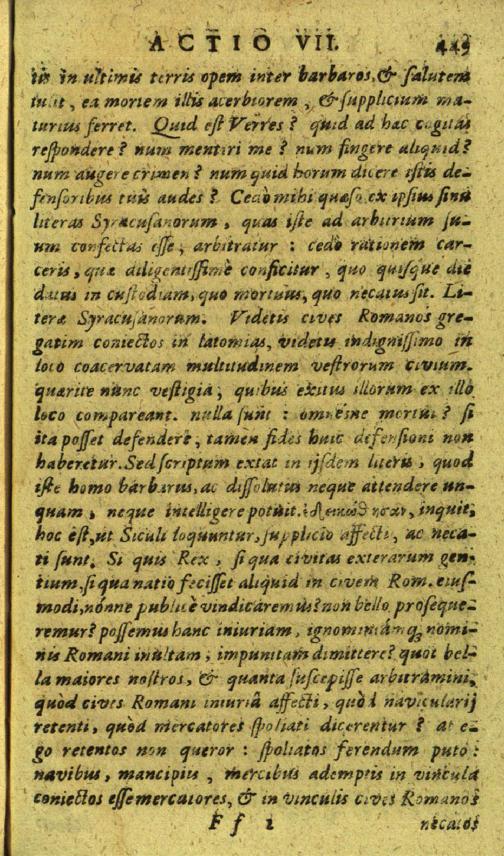 ACTIO VII. 449
tis in ultimis terris opem inter barbaros, & salutem
tulit, ea mortem illis acerbiorem, & supplicium ma-
turius ferret. Quid est Verres? quid ad hæc cogitas
respondere? num mentiri me? num fingere aliquid?
num augere crimen? num quid horum dicere istis de-
fensoribus tuis audes? Cedò mihi quæso, ex ipsius sinu
literas Syracusanorum, quas iste ad arbitrium su-
um confectas esse, arbitratur: cedo rationem car-
ceris, quæ diligentissimè conficitur, quo quisque die
datus in custodiam, quo mortuus, quo necatus sit. Li-
teræ Syracusanorum. Videtis cives Romanos gre-
gatim coniectos in latomias, videtis indignissimo in
loco coacervatam multitudinem vestrorum civium.
quærite nunc vestigia, quibus exitus illorum ex illo
loco compareant. nulla sunt: omnesne mortui? si
ita posset defendere, tamen fides huic defensioni non
haberetur. Sed scriptum extat in ijsdem literis, quod
iste homo barbarus, ac dissolutus neque attendere un-
quam, neque intelligere potuit. inquit,
hoc est, ut Siculi loquuntur, supplicio affecti, ac neca-
ti sunt. Si quis Rex, si qua civitas exterarum gen-
tium, si qua natio fecisset aliquid in civem Rom. eius-
modi, nonne publicè vindicaremus? non bello proseque-
remur? possemus hanc iniuriam, ignominiamq; nomi-
nis Romani inultam, impunitam dimittere? quot bel-
la maiores nostros, & quanta suscepisse arbitramini,
quòd cives Romani iniuriâ affecti, quòd navicularij
retenti, quòd mercatores spoliati dicerentur? at e-
go retentos non queror: spoliatos ferendum puto:
navibus, mancipiis, mercibus ademptis in vincula
coniectos esse mercatores, & in vinculis cives Romanos
F f i necatos